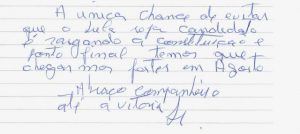 A unica chance de evitar
que o Lula seja candidato
é rasgando a constituição e
ponto final temos que
chegar mos fortes em Agosto
Abraço Companheiro
até a vitoria